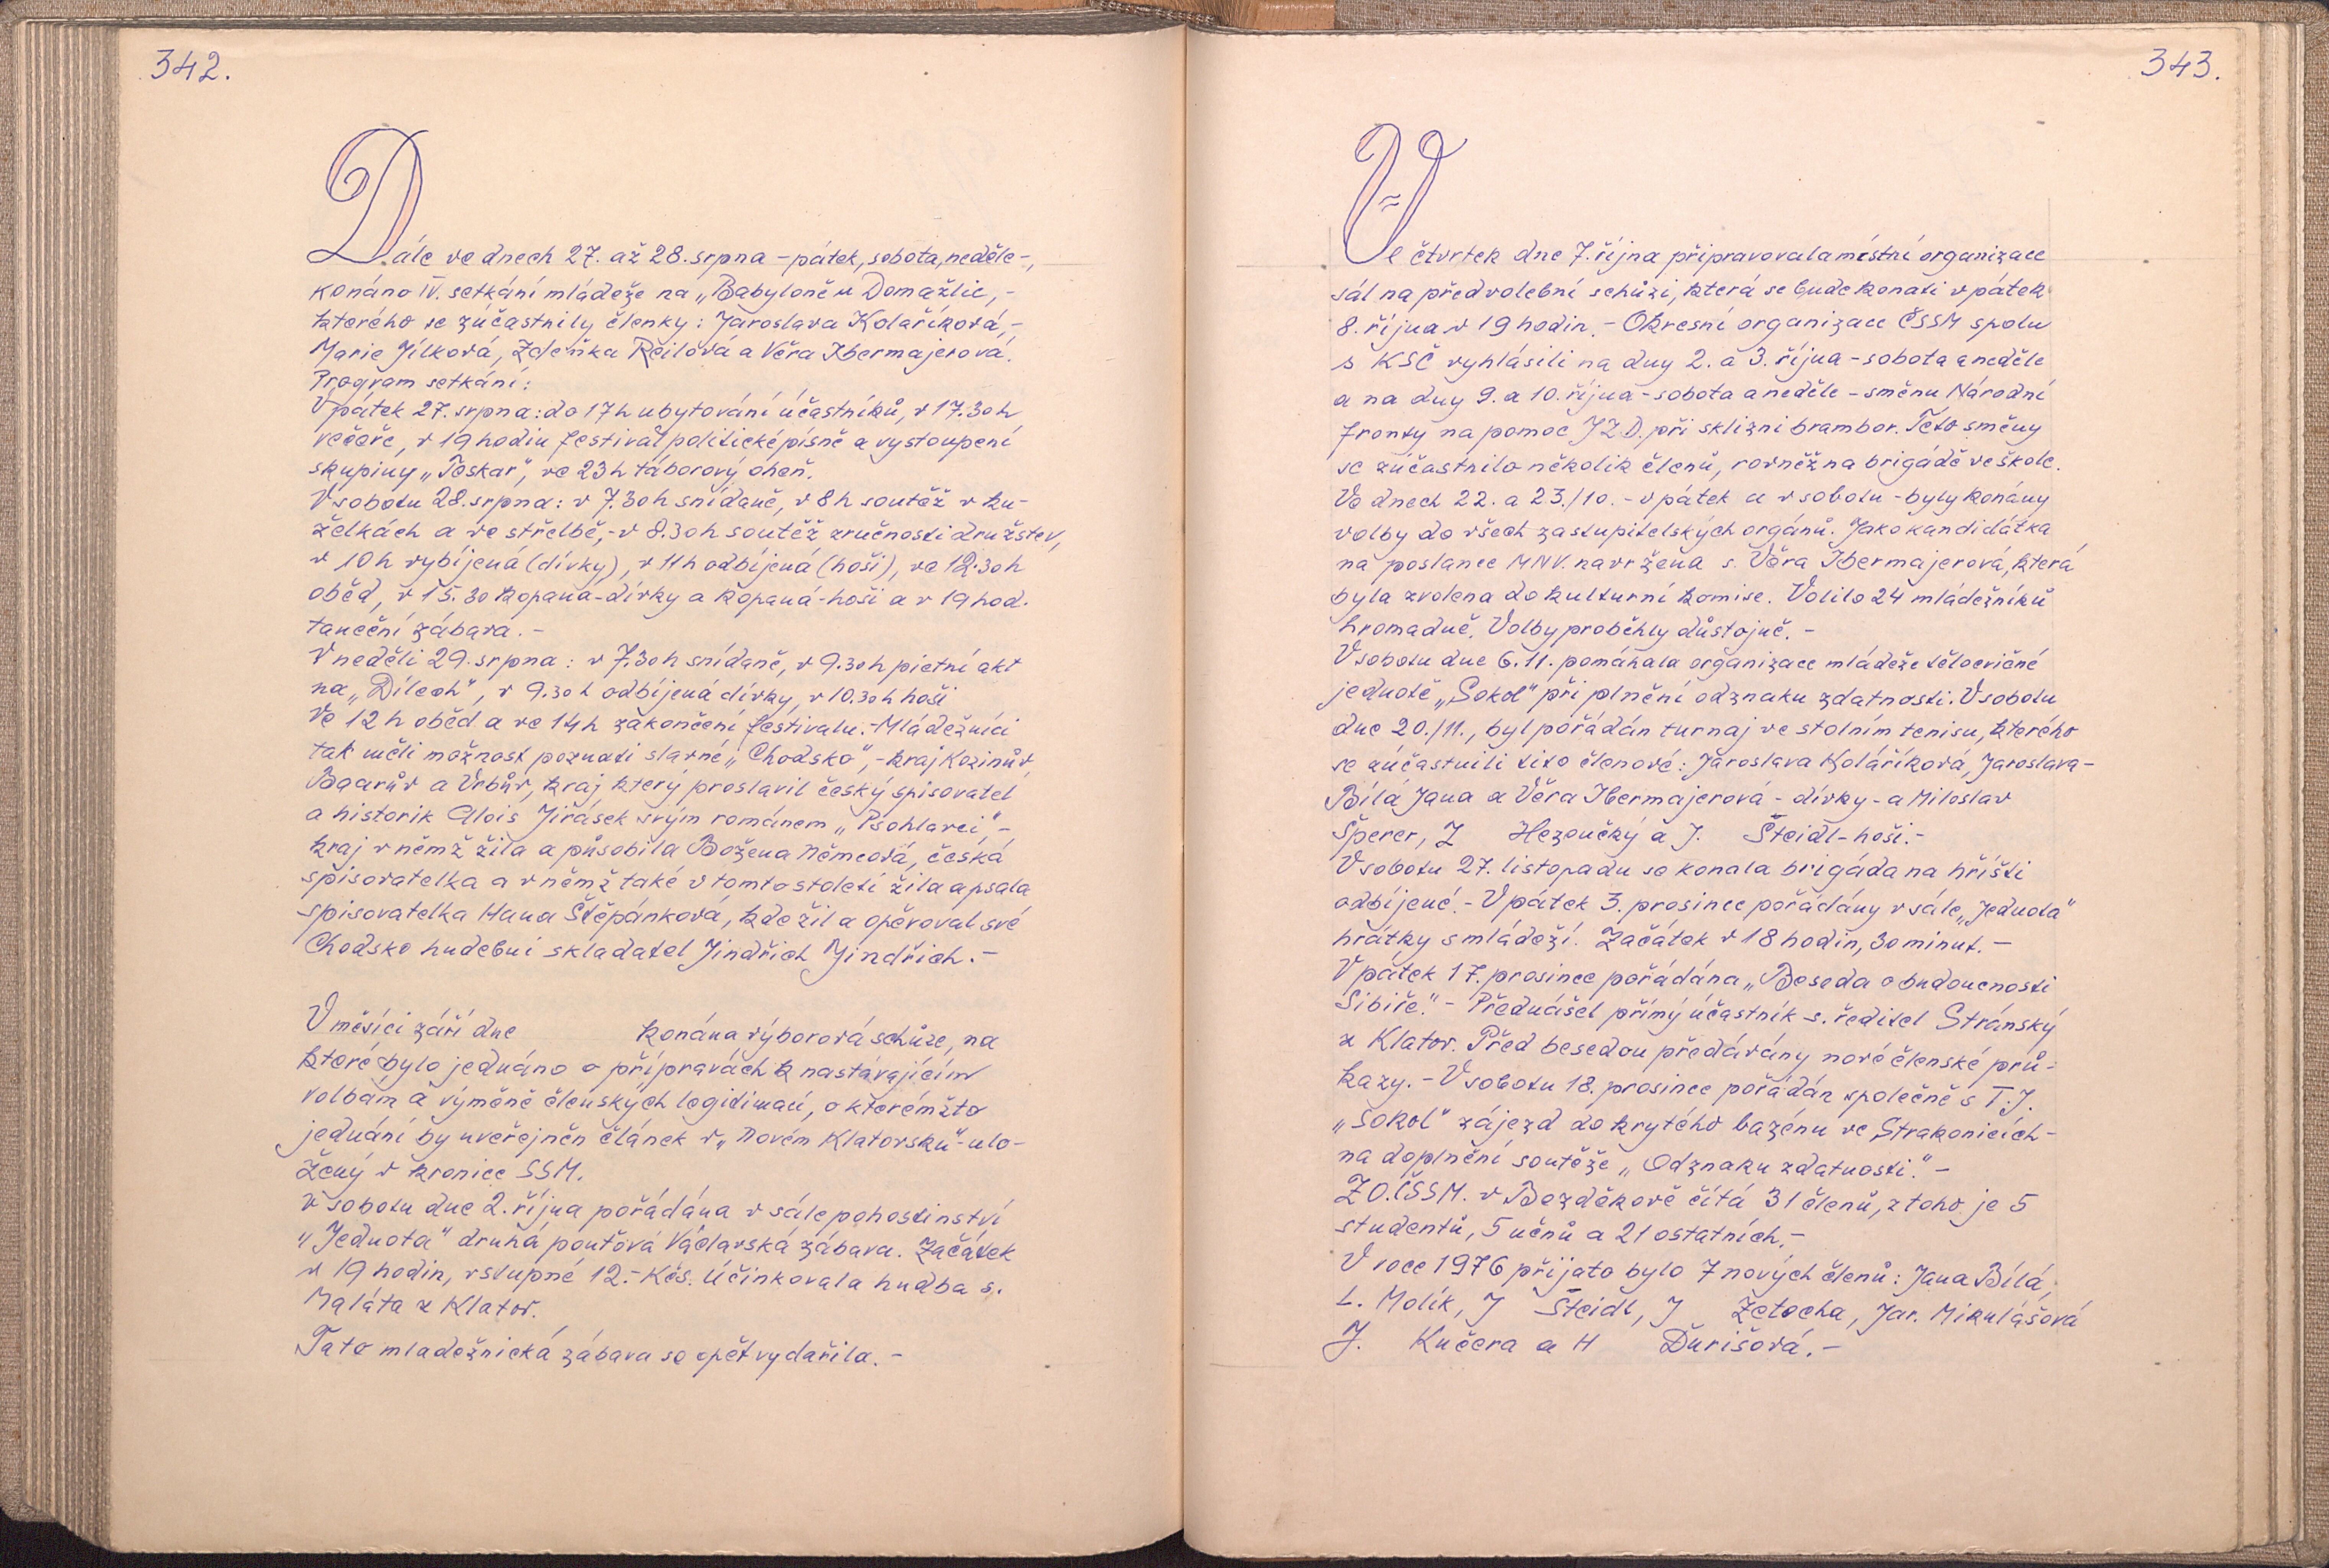 342.
Dále ve dnech 27. až 28. srpna - pátek, sobota, neděle -,
konáno IV. setkání mládeže na „Babyloně u Domažlic, -
kterého se zúčastnily členky: Jaroslava Kolaříková, -
Marie Jílková, Zdeňka Reilová a Věra Ibermajerová.
Program setkání:
V pátek 27. srpna: do 17 h ubytování účastníků, v 17.30 h
večeře, v 19 hodin festival politické písně a vystoupení
skupiny „Toskar", ve 23 h táborový oheň.
V sobotu 28. srpna: v 7.30 h snídaně, v 8 h soutěž v ku-
želkách a ve střelbě, - v 8.30 h soutěž zručnosti družstev,
v 10 h vybíjená (dívky), v 11 h odbíjená (hoši), ve 12.30 h
oběd, v 15.30 kopaná - dívky a kopaná - hoši a v 19 hod.
taneční zábava. -
V neděli 29. srpna: v 7.30 h snídaně, v 9.30 h pietní akt
na „Dílech", v 9.30 h odbíjená dívky, v 10.30 h hoši
Ve 12 h oběd a ve 14 h zakončení festivalu. - Mládežníci
tak měli možnost poznati slavné „Chodsko", - kraj Kozinův,
Baarův a Vrbův, kraj který proslavil český spisovatel
a historik Alois Jirásek svým románem „Psohlavci", -
kraj v němž žila a působila Božena Němcová, česká
spisovatelka a v němž také v tomto století žila a psala
spisovatelka Hana Štěpánková, kde žil a opěvoval své
Chodsko hudební skladatel Jindřich Jindřich. -
V měsíci září dne konána výborová schůze, na
které bylo jednáno o přípravách k nastávajícím
volbám a výměně členských legitimací, o kterémžto
jednání by uveřejněn článek v „Novém Klatovsku" - ulo-
žený v kronice SSM.
V sobotu dne 2. října pořádána v sále pohostinství
„Jednota" druhá pouťová Václavská zábava. Začátek
v 19 hodin, vstupné 12.- Kčs. Účinkovala hudba s.
Maláta z Klatov.
Tato mladežnická zábava se opět vydařila. -
343.
Ve čtvrtek dne 7. října připravovala místní organizace
sál na předvolební schůzi, která se bude konati v pátek
8. října v 19 hodin. - Okresní organizace ČSSM spolu
s KSČ vyhlásili na dny 2. a 3. října - sobota a neděle
a na dny 9. a 10. října - sobota a neděle - směnu Národní
fronty na pomoc JZD. při sklizni brambor. Této směny
se zúčastnilo několik členů, rovněž na brigádě ve škole.
Ve dnech 22. a 23./10. - v pátek a v sobotu - byly konány
volby do všech zastupitelských orgánů. Jako kandidátka
na poslance MNV. navržena s. Věra Ibermajerová, která
byla zvolena do kulturní komise. Volilo 24 mládežníků
hromadně. Volby proběhly důstojně. -
V sobotu dne 6.11. pomáhala organizace mládeže tělocvičné
jednotě „Sokol" při plnění odznaku zdatnosti. V sobotu
dne 20./11., byl pořádán turnaj ve stolním tenisu, kterého
se zúčastnili tito členové: Jaroslava Koláříková, Jaroslava -
Bílá Jana a Věra Ibermajerová - dívky - a Miloslav
Šperer, Z Hezoučký a J. Šteidl - hoši. -
V sobotu 27. listopadu se konala brigáda na hřišti
odbíjené. - V pátek 3. prosince pořádány v sále „Jednota"
hrátky s mládeží. Začátek v 18 hodin, 30 minut. -
V pátek 17. prosince pořádána „Beseda o budoucnosti
Sibiře." - Přednášel přímý účastník s. ředitel Stránský
z Klatov. Před besedou předávány nové členské prů-
kazy. - V sobotu 18. prosince pořádán společně s T.J.
„Sokol" zájezd do krytého bazénu ve Strakonicích -
na doplnění soutěže „Odznaku zdatnosti." -
ZO. ČSSM. v Bezděkově čítá 31 členů, z toho je 5
studentů, 5 učnů a 21 ostatních. -
V roce 1976 přijato bylo 7 nových členů: Jana Bílá,
L. Molík, J Šteidl, J Zetocha, Jar. Mikulášová
J. Kučera a H Ďurišová. -